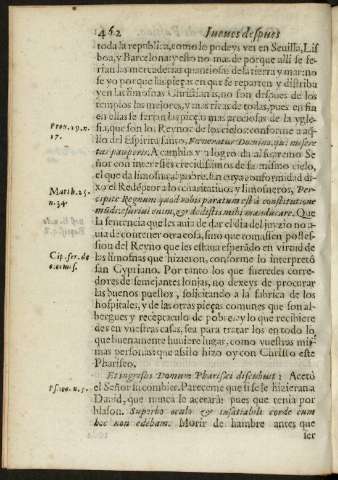 462 Iueues despues
toda la republica, como lo podeys ver en Seuilla, Lis
boa, y Barcelona: y esto no mas de porque alli se fe-
rian las mercaderias quantiosas de la tierra y mar: no
se yo porque las pieças en que se reparten y distribu
yen las limosnas Christianas, no son despues de los
templos las mejores, y mas ricas de todas, pues en fin
en ellas se ferian las pieças mas preciosas de la ygle-
Prou. 19. n. sia, que son los Reynos de los cielos: conforme a aq-
17. llo del Espiritu santo, Foeneratur Domino, qui misere
tur pauperis. A cambio y a logro da al supremo Se
ñor con interesses crecidissimos de su mismo cielo,
el que da limosna al pobre. En cuya conformidad di-
Matth. 25. xo el Redẽptor a los caritatiuos, y limosneros, Per-
n. 34. cipite Regnum quod vobis paratum est à constitutione
mũdi: esuriui enim, & dedistis mihi manducare. Que
la sentencia que les auia de dar el dia del juyzio no a-
uia de contener otra cosa, sino que tomassen posses-
sion del Reyno que les estaua esperãdo en virtud de
Cip. ser. de las limosnas que hizieron, conforme lo interpretó
san Cypriano. Por tanto los que fueredes corre-
dores de semejantes lonjas, no dexeys de procurar
las buenos puestos, solicitando a la fabrica de los
hospitales, y de las otras pieças comunes que son al-
bergues y receptaculo de pobres, y lo que recibiere
des en vuestras casas, sea para tratar los en todo lo
que buenamente huuiere lugar, como vuestras mis-
mas personas: que assi lo hizo oy con Christo este
Phariseo.
Et ingressus Domum Pharisæi discubuit: Acetò
el Señor su combite. Pareceme que si se le hizieran a
Dauid, que nunca le acetara: pues que tenia por
blason. Superbo oculo & insatiabili corde cum
hoc non edebam. Morir de hambre antes que
ser